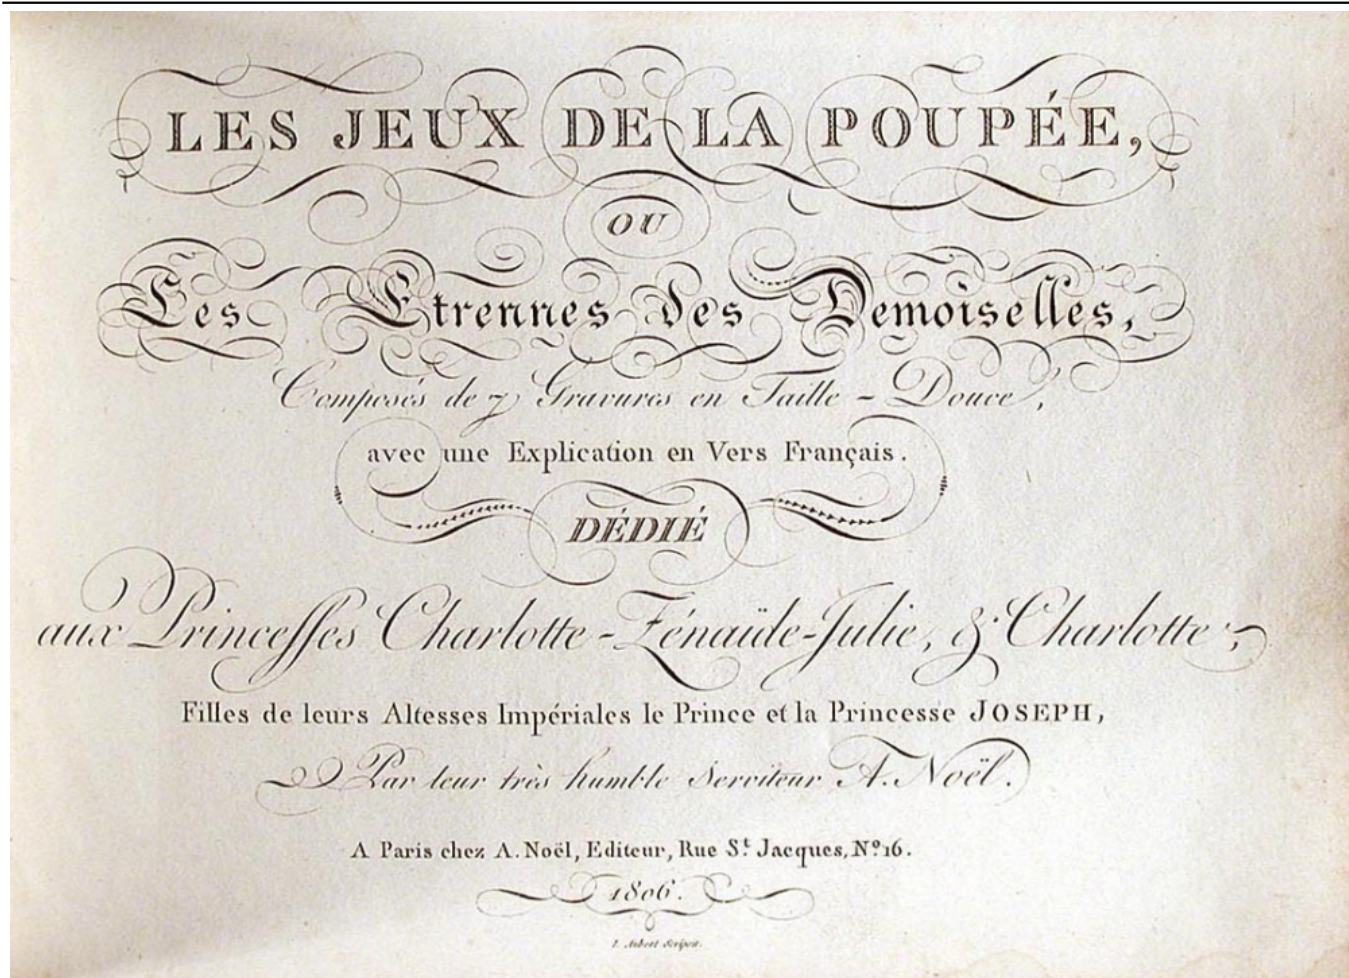 LES JEUX DE LA POUPÉE,
OU
Les Etrennes des Demoiselles,
Composés de 7 Gravures en Taille-Douce,
avec une Explication en Vers Français.
DÉDIÉ
aux Princesses Charlotte-Zénaïde-Julie, & Charlotte,
Filles de leurs Altesses Impériales le Prince et la Princesse JOSEPH,
Par leur très humble Serviteur A. Noël.
A Paris chez A. Noël, Editeur, Rue St. Jacques, No. 16.
1806.
Scripsit.